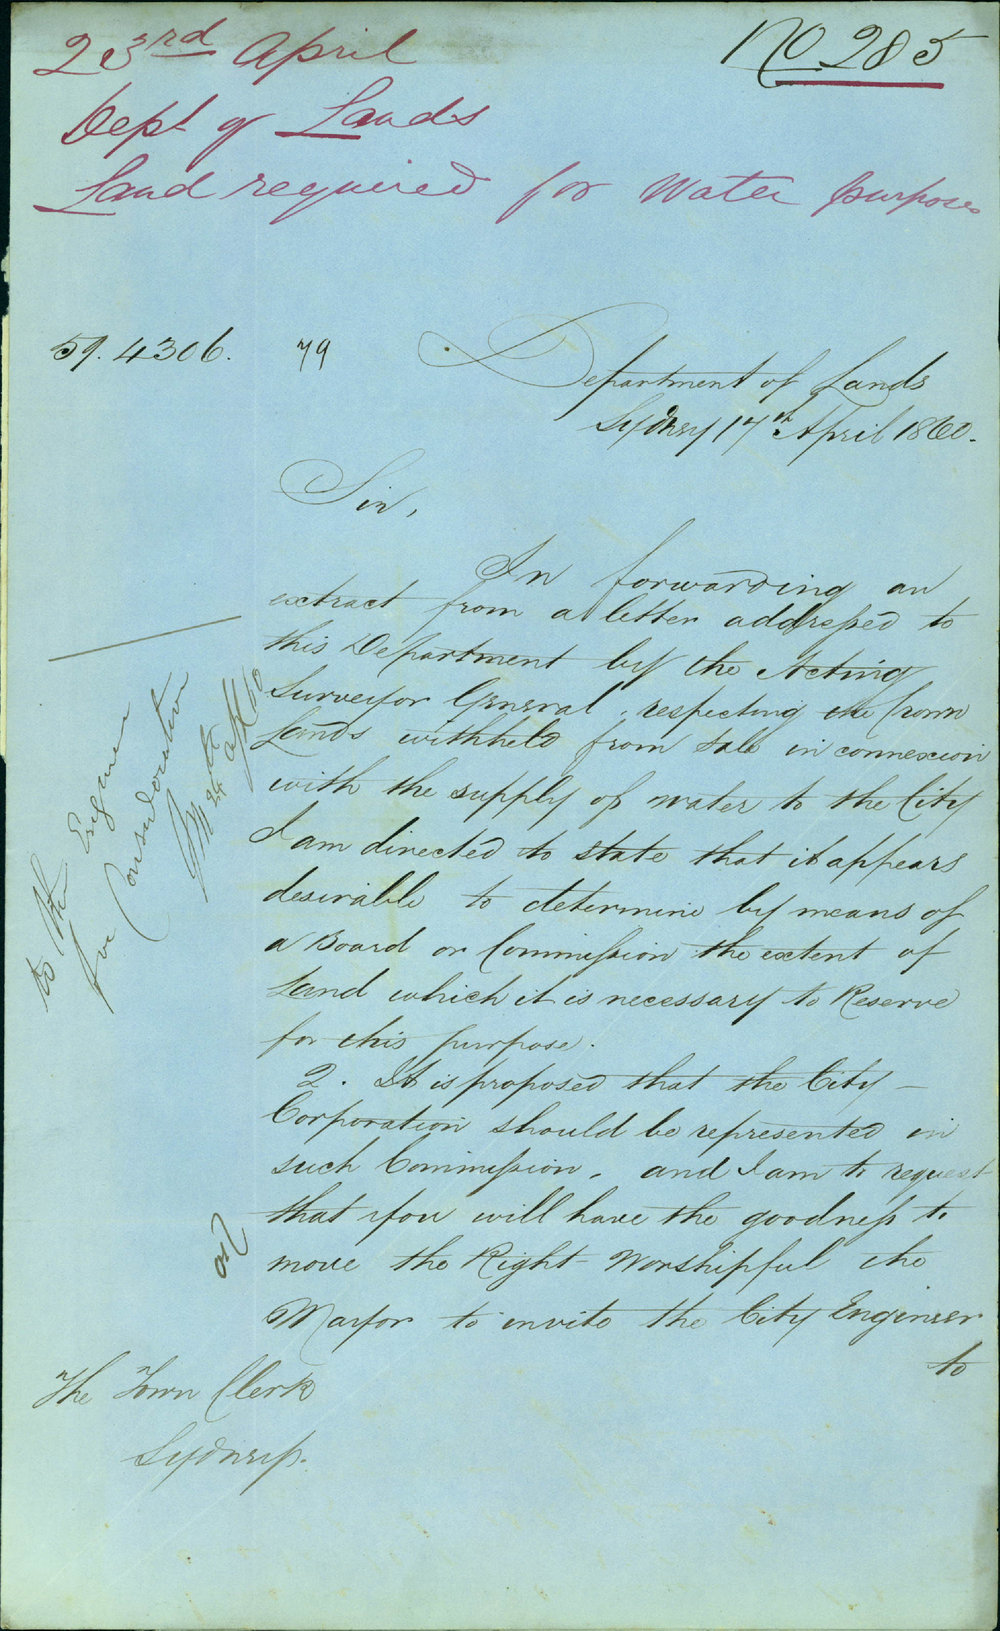 23rd April
No 285
Dept of Lands
Land required for Water purposes
59. 4306. 79
Department of Lands
Sydney 17th April 1860.
Sir,
In forwarding an
extract from a letter addressed to
this Department by the Acting
Surveyor General, respecting the Crown
Lands withheld from sale in connexion
with the supply of water to the City
I am directed to state that it appears
desirable to determine by means of
a Board or Commission the extent of
Land which it is necessary to Reserve
for this purpose.
2. It is proposed that the City
Corporation should be represented in
such Commission, and I am to request
that you will have the goodness to
move the Right Worshipful the
Mayor to invite the City Engineer
to
The Town Clerk
Sydney.
to the Engineer
for Consideration
24th Apl 60